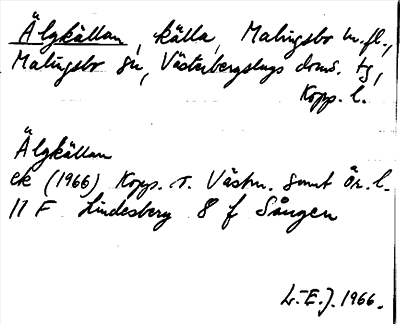 Älgkällan, källa, Malingsbo m. fl.,
Malingsbo sn, Västerbergslags doms. tg,
Kopp. l.
Älgkällan
ek (1966) Kopp. o. Västm. samt Ör. l.
11 F Lindesberg 8 f Sången
L.-E. J. 1966.